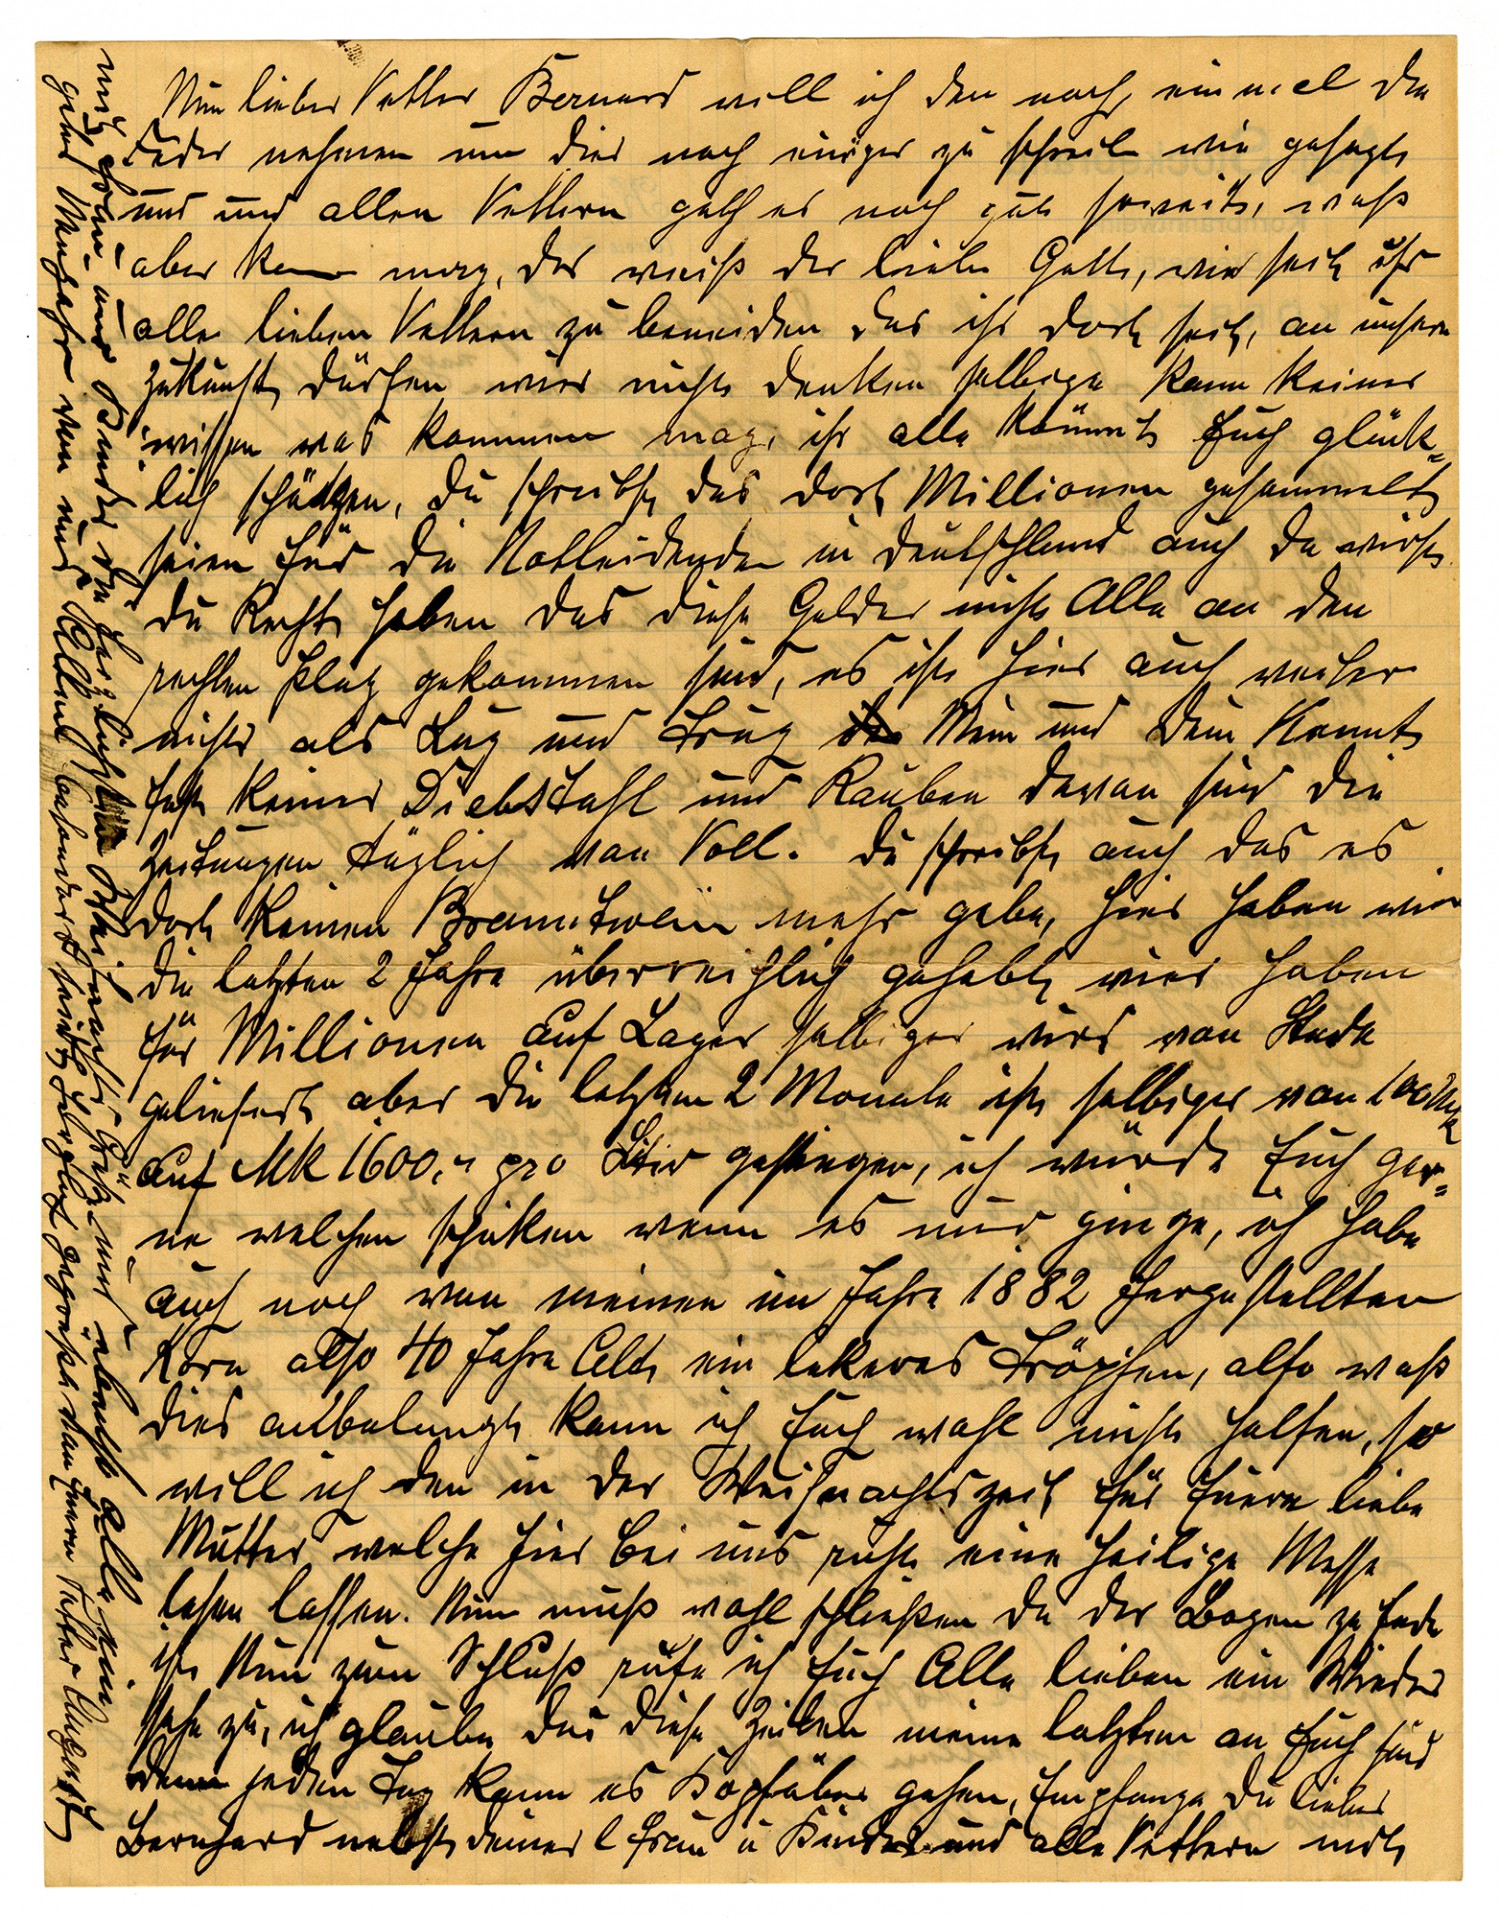 Nun lieber Vetter Bernard will ich den noch einmel die
Feder nehmen um dier noch einiges zu schreiben wie gesagt
uns und allen Vettern geth es noch gut soweit, waß
aber komm mag, das weiß der liebe Gott, wier seit ihr
alle lieben Vettern zu beneiden das ihr dort seit, an unsere
Zukunft dürfen wier nicht denken selbige kann keiner
wissen was kommen mag, ihr alle könnnt Euch glück-
lich schätzen, du schreibst das dort Millionen gesammelt
seien für die Notleidende in Deutschland auch da wirst
du Recht haben das diese Gelder nicht Alle an den
rechten Platz gekommen sind, es ist hier auch weiter
nichts als Lug und Trug Mein und Dein Kennt
fast keiner Diebstahl und Rauben davon sind die
Zeitungen täglich von Voll. du schreibst auch das es
dort keinen Branntwein mehr gebe, hier haben wir
die letzten 2 Jahre überreichlich gehabt wier haben
für Millionen auf Lager selbiger wird von Stade
geliefert aber die letzten 2 Monate ist selbiger von 100 Mk
auf Mk 1600,- pro Liter gestiegen, ich würde Euch ger-
ne welchen schiken wenn es nur ginge, ich habe
auch noch von meinen im Jahre 1882 hergestellten
Korn also 40 Jahre Alt, ein lekeres Tröpfen, also waß
dies anbelangt kann ich Euch wohl nicht helfen, so
will ich den in der Weihnachtszeit für Euere liebe
Mutter welche hier bei uns ruht eine heilige Messe
lesen lassen. Nun muß wohl schließen da der Bogen zu Ende
ist Nun zum Schluß rufe ich Euch Alle lieben ein Wieder
sehn zu, ich glaube das diese Zeilen meine letzten an Euch sind
denn jeden Tag kann es Kopfüber gehen, Empfange du lieber
Bernhard nebst deiner l Frau u Kinder und alle Vettern nebst
ihren Frauen und Kinder die herzlichsten Weihnachts Grüße und ebenso alle ein
gutes Neujahr von uns Allen besonders seit herzlich gegrüßt von Euern Vetter August